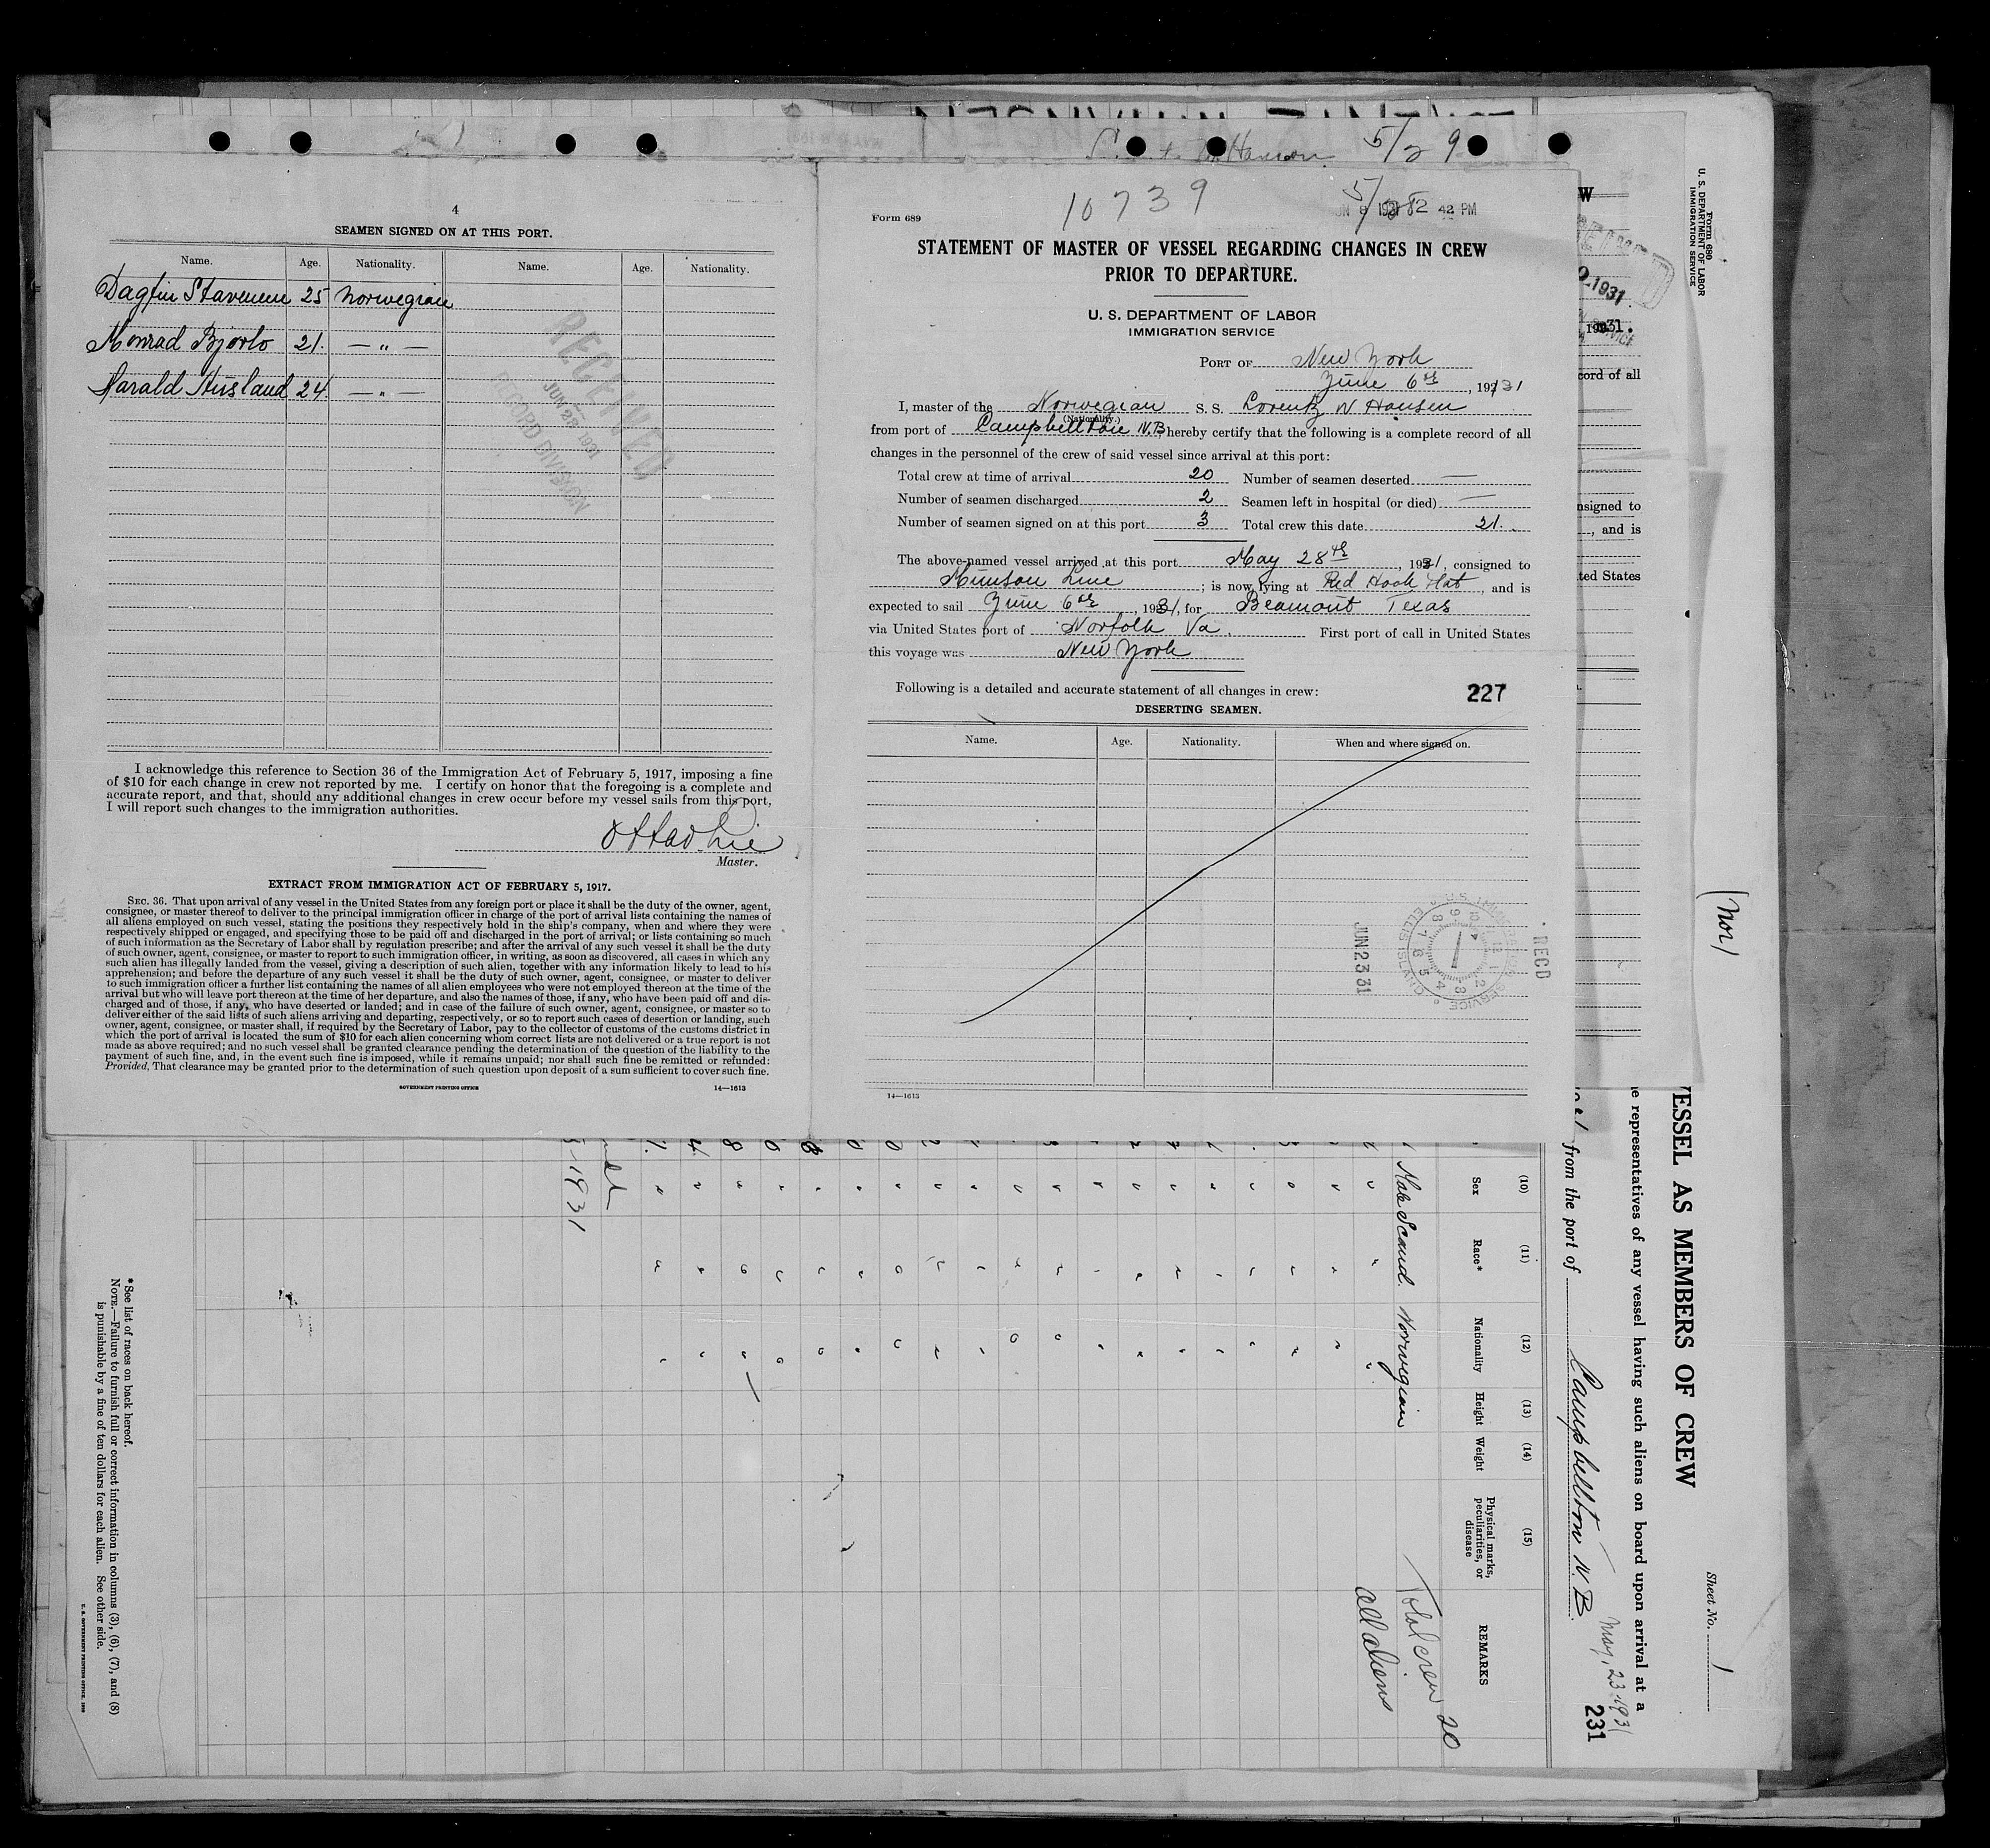 5/29
4
SEAMEN SIGNED ON AT THIS PORT.
Name. Age. Nationality. Name. Age. Nationality.
25 Norwegian
Konrad Bjorlo 21. — " —
Harald Husland 24. — " —
RECEIVED
JUN 23 1931
RECORD DIVISION
I acknowledge this reference to Section 36 of the Immigration Act of February 5, 1917, imposing a fine
of $10 for each change in crew not reported by me. I certify on honor that the foregoing is a complete and
accurate report, and that, should any additional changes in crew occur before my vessel sails from this port,
I will report such changes to the immigration authorities.
Master.
EXTRACT FROM IMMIGRATION ACT OF FEBRUARY 5, 1917.
SEC. 36. That upon arrival of any vessel in the United States from any foreign port or place it shall be the duty of the owner, agent,
consignee, or master thereof to deliver to the principal immigration officer in charge of the port of arrival lists containing the names of
all aliens employed on such vessel, stating the positions they respectively hold in the ship's company, when and where they were
respectively shipped or engaged, and specifying those to be paid off and discharged in the port of arrival; or lists containing so much
of such information as the Secretary of Labor shall by regulation prescribe; and after the arrival of any such vessel it shall be the duty
of such owner, agent, consignee, or master to report to such immigration officer, in writing, as soon as discovered, all cases in which any
such alien has illegally landed from the vessel, giving a description of such alien, together with any information likely to lead to his
apprehension; and before the departure of any such vessel it shall be the duty of such owner, agent, consignee, or master to deliver
to such immigration officer a further list containing the names of all alien employees who were not employed thereon at the time of the
arrival but who will leave port thereon at the time of her departure, and also the names of those, if any, who have been paid off and dis-
charged and of those, if any, who have deserted or landed; and in case of the failure of such owner, agent, consignee, or master so to
deliver either of the said lists of such aliens arriving and departing, respectively, or so to report such cases of desertion or landing, such
owner, agent, consignee, or master shall, if required by the Secretary of Labor, pay to the collector of customs of the customs district in
which the port of arrival is located the sum of $10 for each alien concerning whom correct lists are not delivered or a true report is not
made as above required; and no such vessel shall be granted clearance pending the determination of the question of the liability to the
payment of such fine, and, in the event such fine is imposed, while it remains unpaid; nor shall such fine be remitted or refunded:
Provided, That clearance may be granted prior to the determination of such question upon deposit of a sum sufficient to cover such fine.
GOVERNMENT PRINTING OFFICE 14—1613
10739
5/28
Form 689
STATEMENT OF MASTER OF VESSEL REGARDING CHANGES IN CREW
PRIOR TO DEPARTURE.
U. S. DEPARTMENT OF LABOR
IMMIGRATION SERVICE
PORT OF New York
June 6th, 1931
I, master of the Norwegian S. S. Lorentz W Hansen
(Nationality.)
from port of Campbellton N.B. hereby certify that the following is a complete record of all
changes in the personnel of the crew of said vessel since arrival at this port:
Total crew at time of arrival 20 Number of seamen deserted —
Number of seamen discharged 2 Seamen left in hospital (or died) —
Number of seamen signed on at this port 3 Total crew this date 21.
The above-named vessel arrived at this port May 28th, 1931, consigned to
Munson Line; is now lying at Red Hook Flat, and is
expected to sail June 6th, 1931, for Beamont Texas
via United States port of Norfolk Va. First port of call in United States
this voyage was New York
Following is a detailed and accurate statement of all changes in crew: 227
DESERTING SEAMEN.
Name. Age. Nationality. When and where signed on.
RECD
JUN 23 31
14—1613
Form 680
U. S. DEPARTMENT OF LABOR
IMMIGRATION SERVICE
(Nor)
Sheet No. 1
VESSEL AS MEMBERS OF CREW
representatives of any vessel having such aliens on board upon arrival at a
from the port of Campbellton N.B. May, 23-1931
231
(10) (11) (12) (13) (14) (15)
Sex Race* Nationality Height Weight Physical marks, peculiarities, or disease REMARKS
Male Scand. Norwegian
Total crew 20
all aliens
1931
* See list of races on back hereof.
NOTE.—Failure to furnish full or correct information in columns (3), (6), (7), and (8)
is punishable by a fine of ten dollars for each alien. See other side.